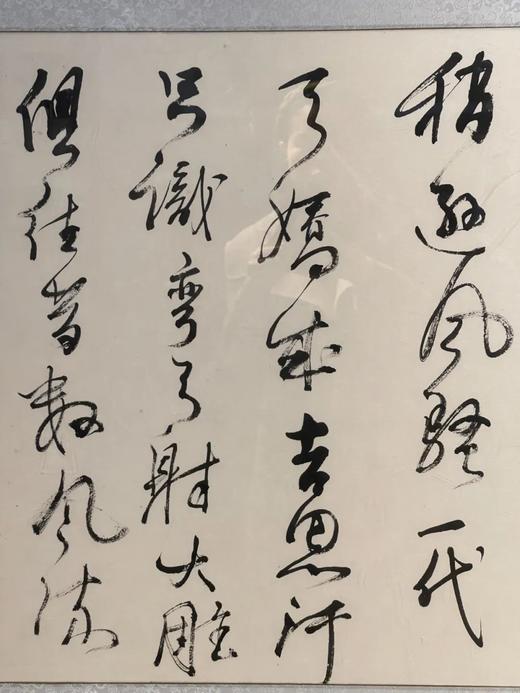 稍逊风骚一代
天嬌成吉思汗
只識弯弓射大雕
俱往昔数风流